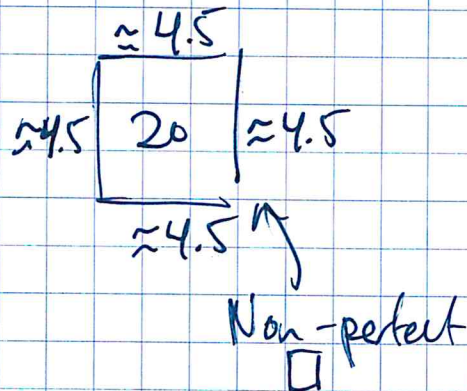 ≈4.5
≈4.5 20 ≈4.5
≈4.5
Non-perfect